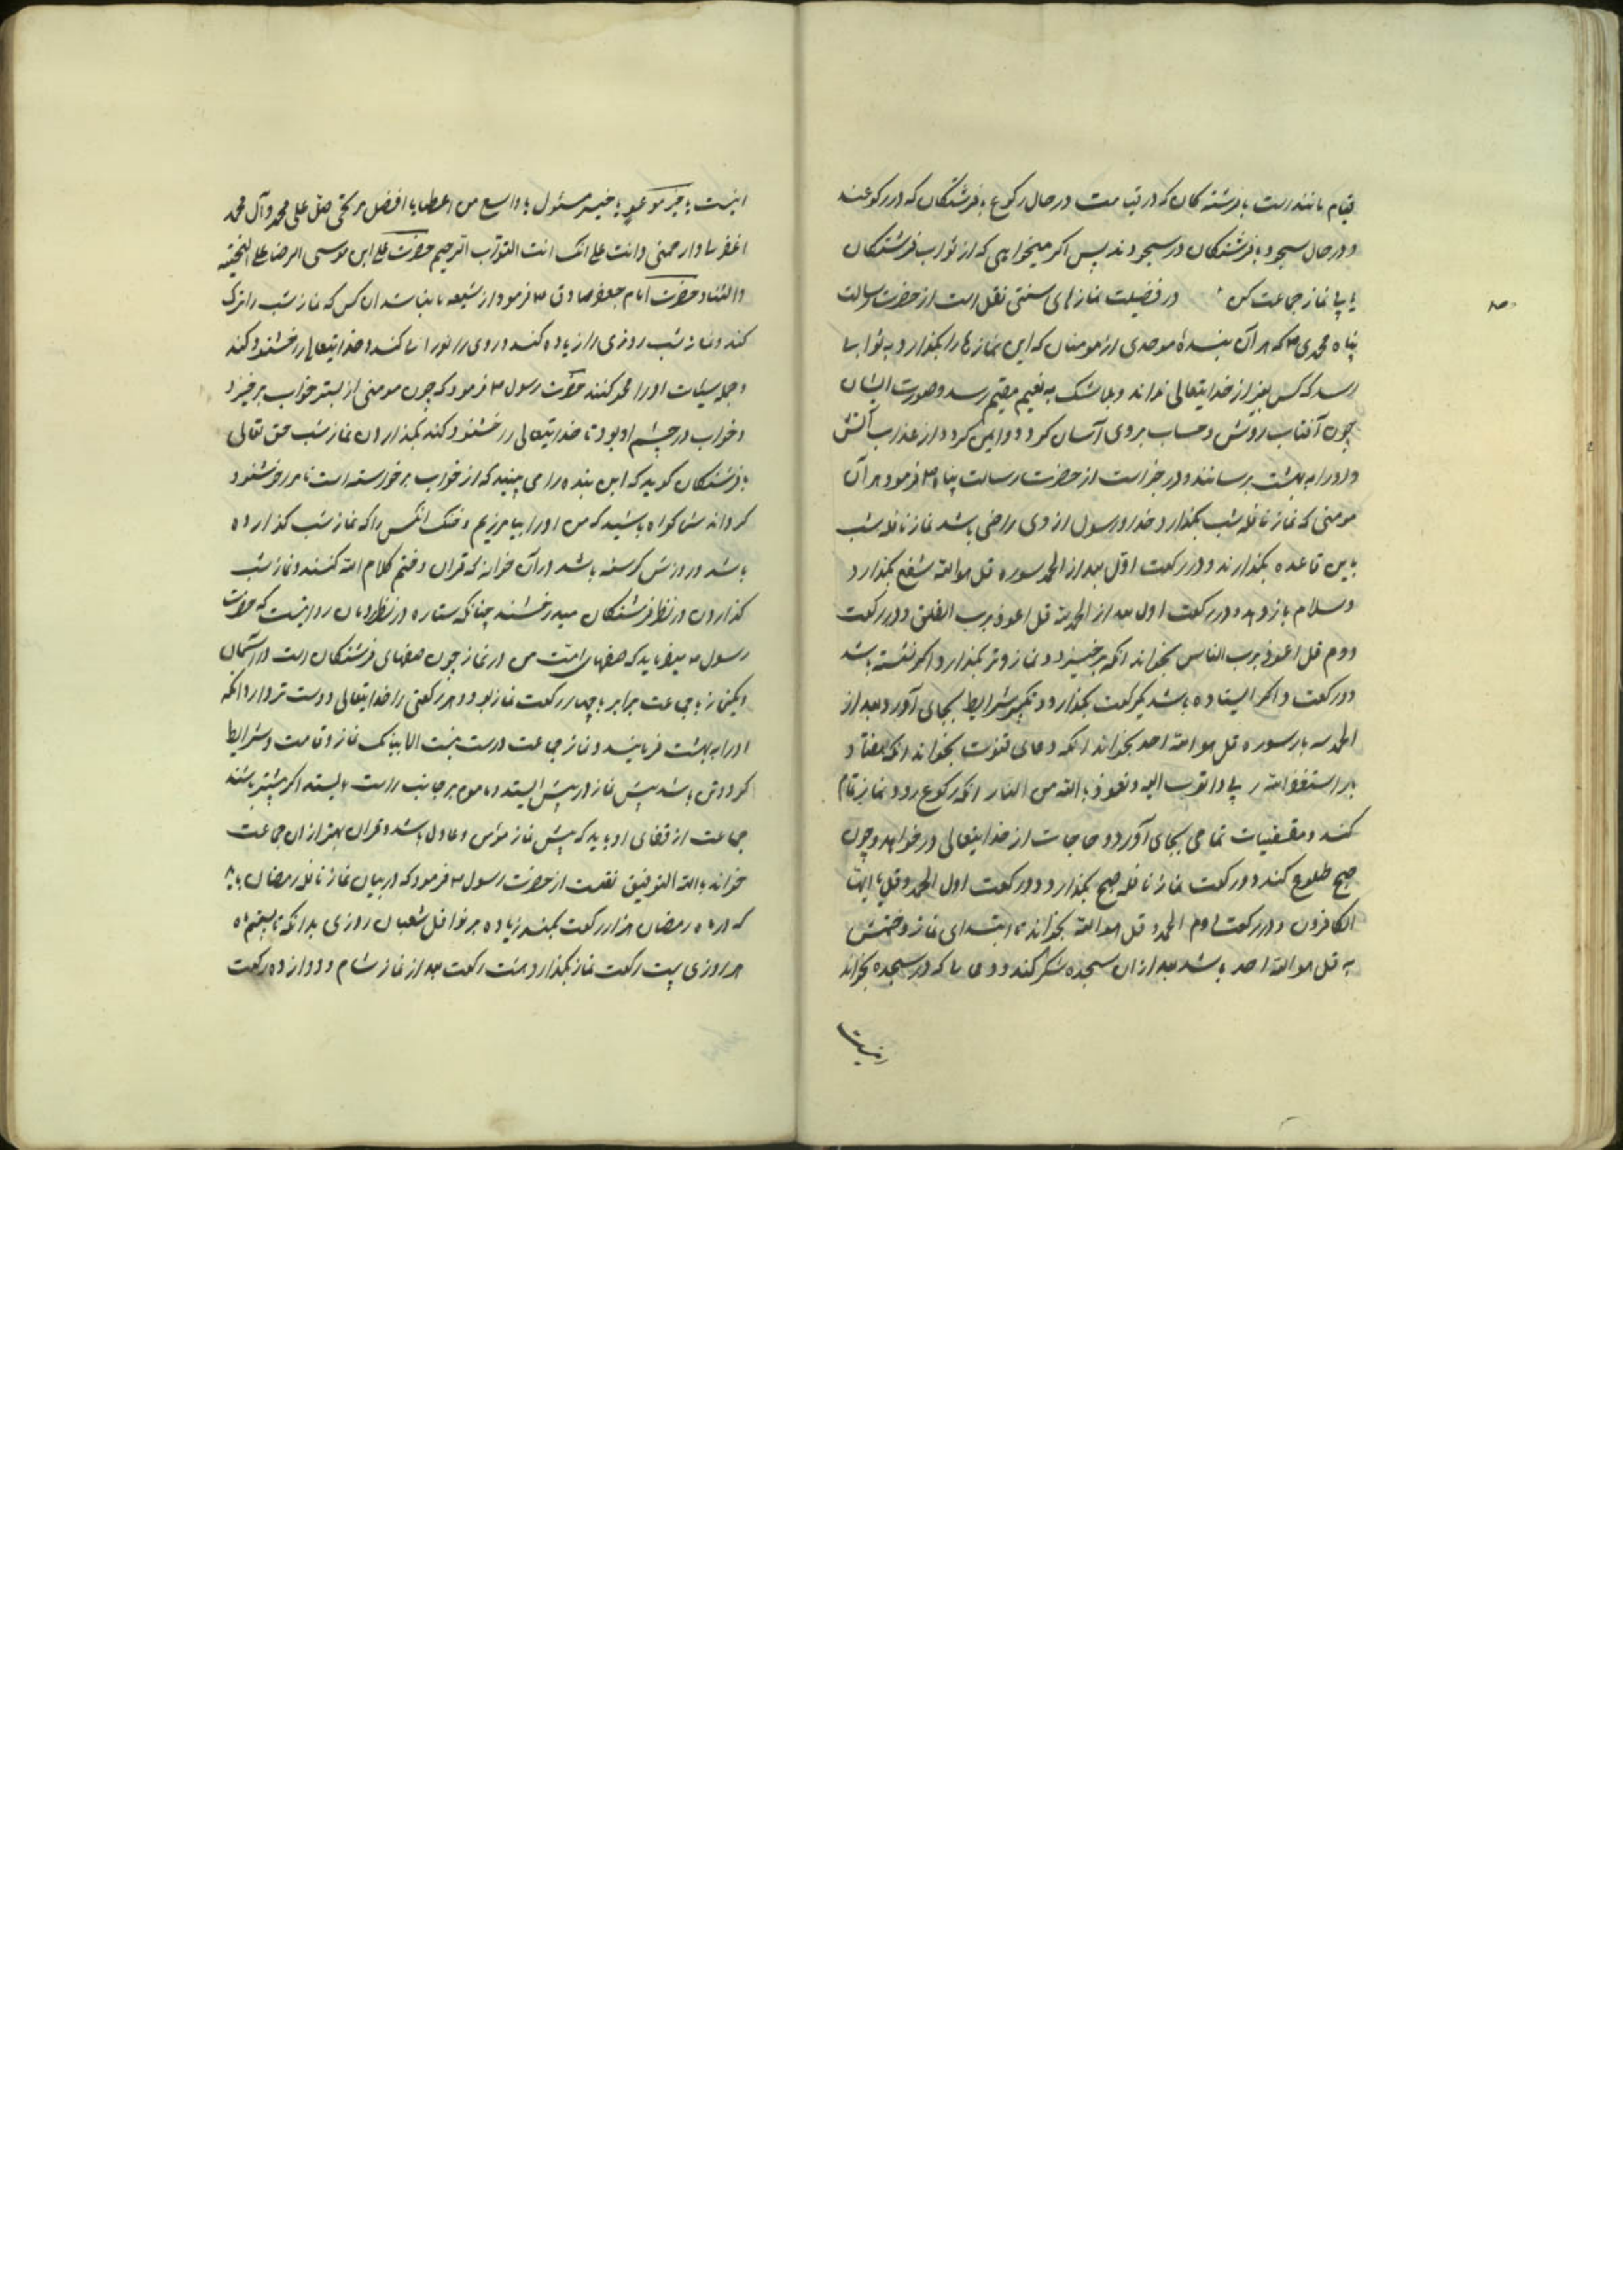 قیام مانندست با فرشته کان که در قیامت در حال رکوع با فرشتکان که در رکوعند
و در حال سجود با فرشتکان در سجودند پس اکر میخواهی که از ثواب فرشتکان
یابی نماز جماعت کن در فضیلت نمازهای سنتی نقل است از حضرت رسالت
پناه محمدی که هر آن بندهٔ موحدی از مومنان که این نمازها را بکذارد به ثوابی
رسد که کس بغیر از خدایتعالی نداند و بلا شک به نعیم مقیم رسد و صورت ایشان
چون آفتاب روشن و حساب بروی آسان کردد و ایمن کردد از عذاب آتش
و او را به بهشت برسانند و در خبر است از حضرت رسالت پناه فرمود هر آن
مومنی که نماز نافله شب بکذارد خدا و رسول از وی راضی باشد نماز نافله شب
باین قاعده بکذارند و در رکعت اول بعد از الحمد سوره قل هو الله شفع بکذارد
و سلام باز دهد و در رکعت اول بعد از الحمد قل اعوذ برب الفلق و در رکعت
دوم قل اعوذ برب الناس بخواند انکه برخیزد و نماز وتر بکذارد و اکر نشسته باشد
دو رکعت و اکر ایستاده باشد یکرکعت بکذارد و تکبیر شرایط بجای آورد و بعد از
الحمد سه بار سوره قل هو الله احد بخواند انکه دعای قنوت بخواند انکه هفتاد
بار استغفر الله ربی و اتوب الیه و نعوذ بالله من النار انکه رکوع رود و نماز تمام
کند و مقتضیات تمامی بجای آورد و حاجات از خدایتعالی در خواهد و چون
صبح طلوع کند دو رکعت نماز نافله صبح بکذارد و در رکعت اول الحمد و قل یا ایها
الکافرون و در رکعت دوم الحمد و قل هو الله بخواند تا ابتدای نماز و ختمش
به قل هو الله احد باشد بعد ازان سجده شکر کند و دعا که در سجده بخواند
اینست
اینست یا خیر موعو یا خیر مسئول یا واسع من اعطایا افضل مرتجی صل علی محمد و آل محمد
اغفر لنا و ارحمنی و انت علی انک انت التواب الرحیم حضرت علی ابن موسی الرضا علیه التحیة
والثناء و حضرت امام جعفر صادق فرمود از شیعه ما نباشد ان کس که نماز شب را ترک
کند و نماز شب روزی را زیاده کند و روی را نورانی کند و خدایتعالی را خشنود کند
و جمله سیئات او را محو کنند حضرت رسول فرمود که چون مومنی از بستر خواب برخیزد
و خواب در چشم او بود تا خدایتعالی را خشنود کند بکذاردن نماز شب حق تعالی
با فرشتکان کوید که این بنده را می بینید که از خواب برخواسته است تا مرا خوشنود
کرداند شما کواه باشید که من او را بیامرزیدم و خنک انکس را که نماز شب کذارده
باشد و روزش کرسنه باشد و در آن خوانه که قران و ختم کلام الله کنند و نماز شب
کذاردن در نظر فرشتکان میدرخشند چنانکه ستاره در نظر مردمان روایتست که حضرت
رسول میفرماید که صفهای امت من در نماز چون صفهای فرشتکان است در آسمان
و یکنماز با جماعت برابر با چهار رکعت نماز بود و هر رکعتی را خدایتعالی دوست تر دارد انکه
او را به بهشت فرمایند و نماز جماعت درست نیست الا ببانک نماز و قامت و شرایط
کر دو تن باشند پیش نماز در پیش ایستد و ماموم بر جانب راست بایستد اکر بیشتر باشند
جماعت از قفای او باید که پیش نماز مؤمن و عادل باشد و قران بهتر از ان جماعت
خواند بالله التوفیق نقلست از حضرت رسول فرمود که در بیان نماز نافله رمضان
که در ماه رمضان هزار رکعت بکنند زیاده بر نوافل شعبان روزی بدانکه تا بیستم ماه
هر روزی بیست رکعت نماز بکذارد هشت رکعت بعد از نماز شام و دوازده رکعت